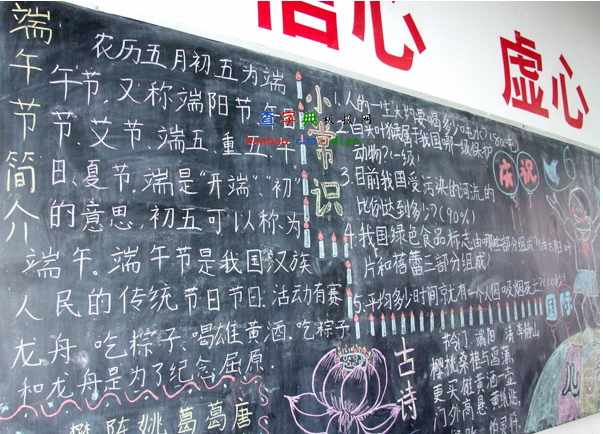 信心
虚心
端午节简介
农历五月初五为端
午节，又称端阳节、午
节、艾节、端五、重午、午
日、夏节，端是“开端”、“初”
的意思，初五可以称为
端午。端午节是我国汉族
人民的传统节日节日活动有赛
龙舟，吃粽子，喝雄黄酒，吃粽子
和龙舟是为了纪念屈原.
小常识
1.人的一生大约要喝多少吨水?
动物?(一级)
3.目前我国受污染的河流的
比例达到多少?(90%)
4.我国绿色食品标志由哪些部分组成?
片和蓓蕾三部分组成
5.平均多少时间就有一个人因吸烟死亡?
古诗
节令门·端阳 清 李静山
樱桃桑椹与菖蒲，
更买雄黄酒一壶
门外高悬黄纸
樊 陈 姚 葛 葛 唐
庆祝
六
国际
儿
查字典